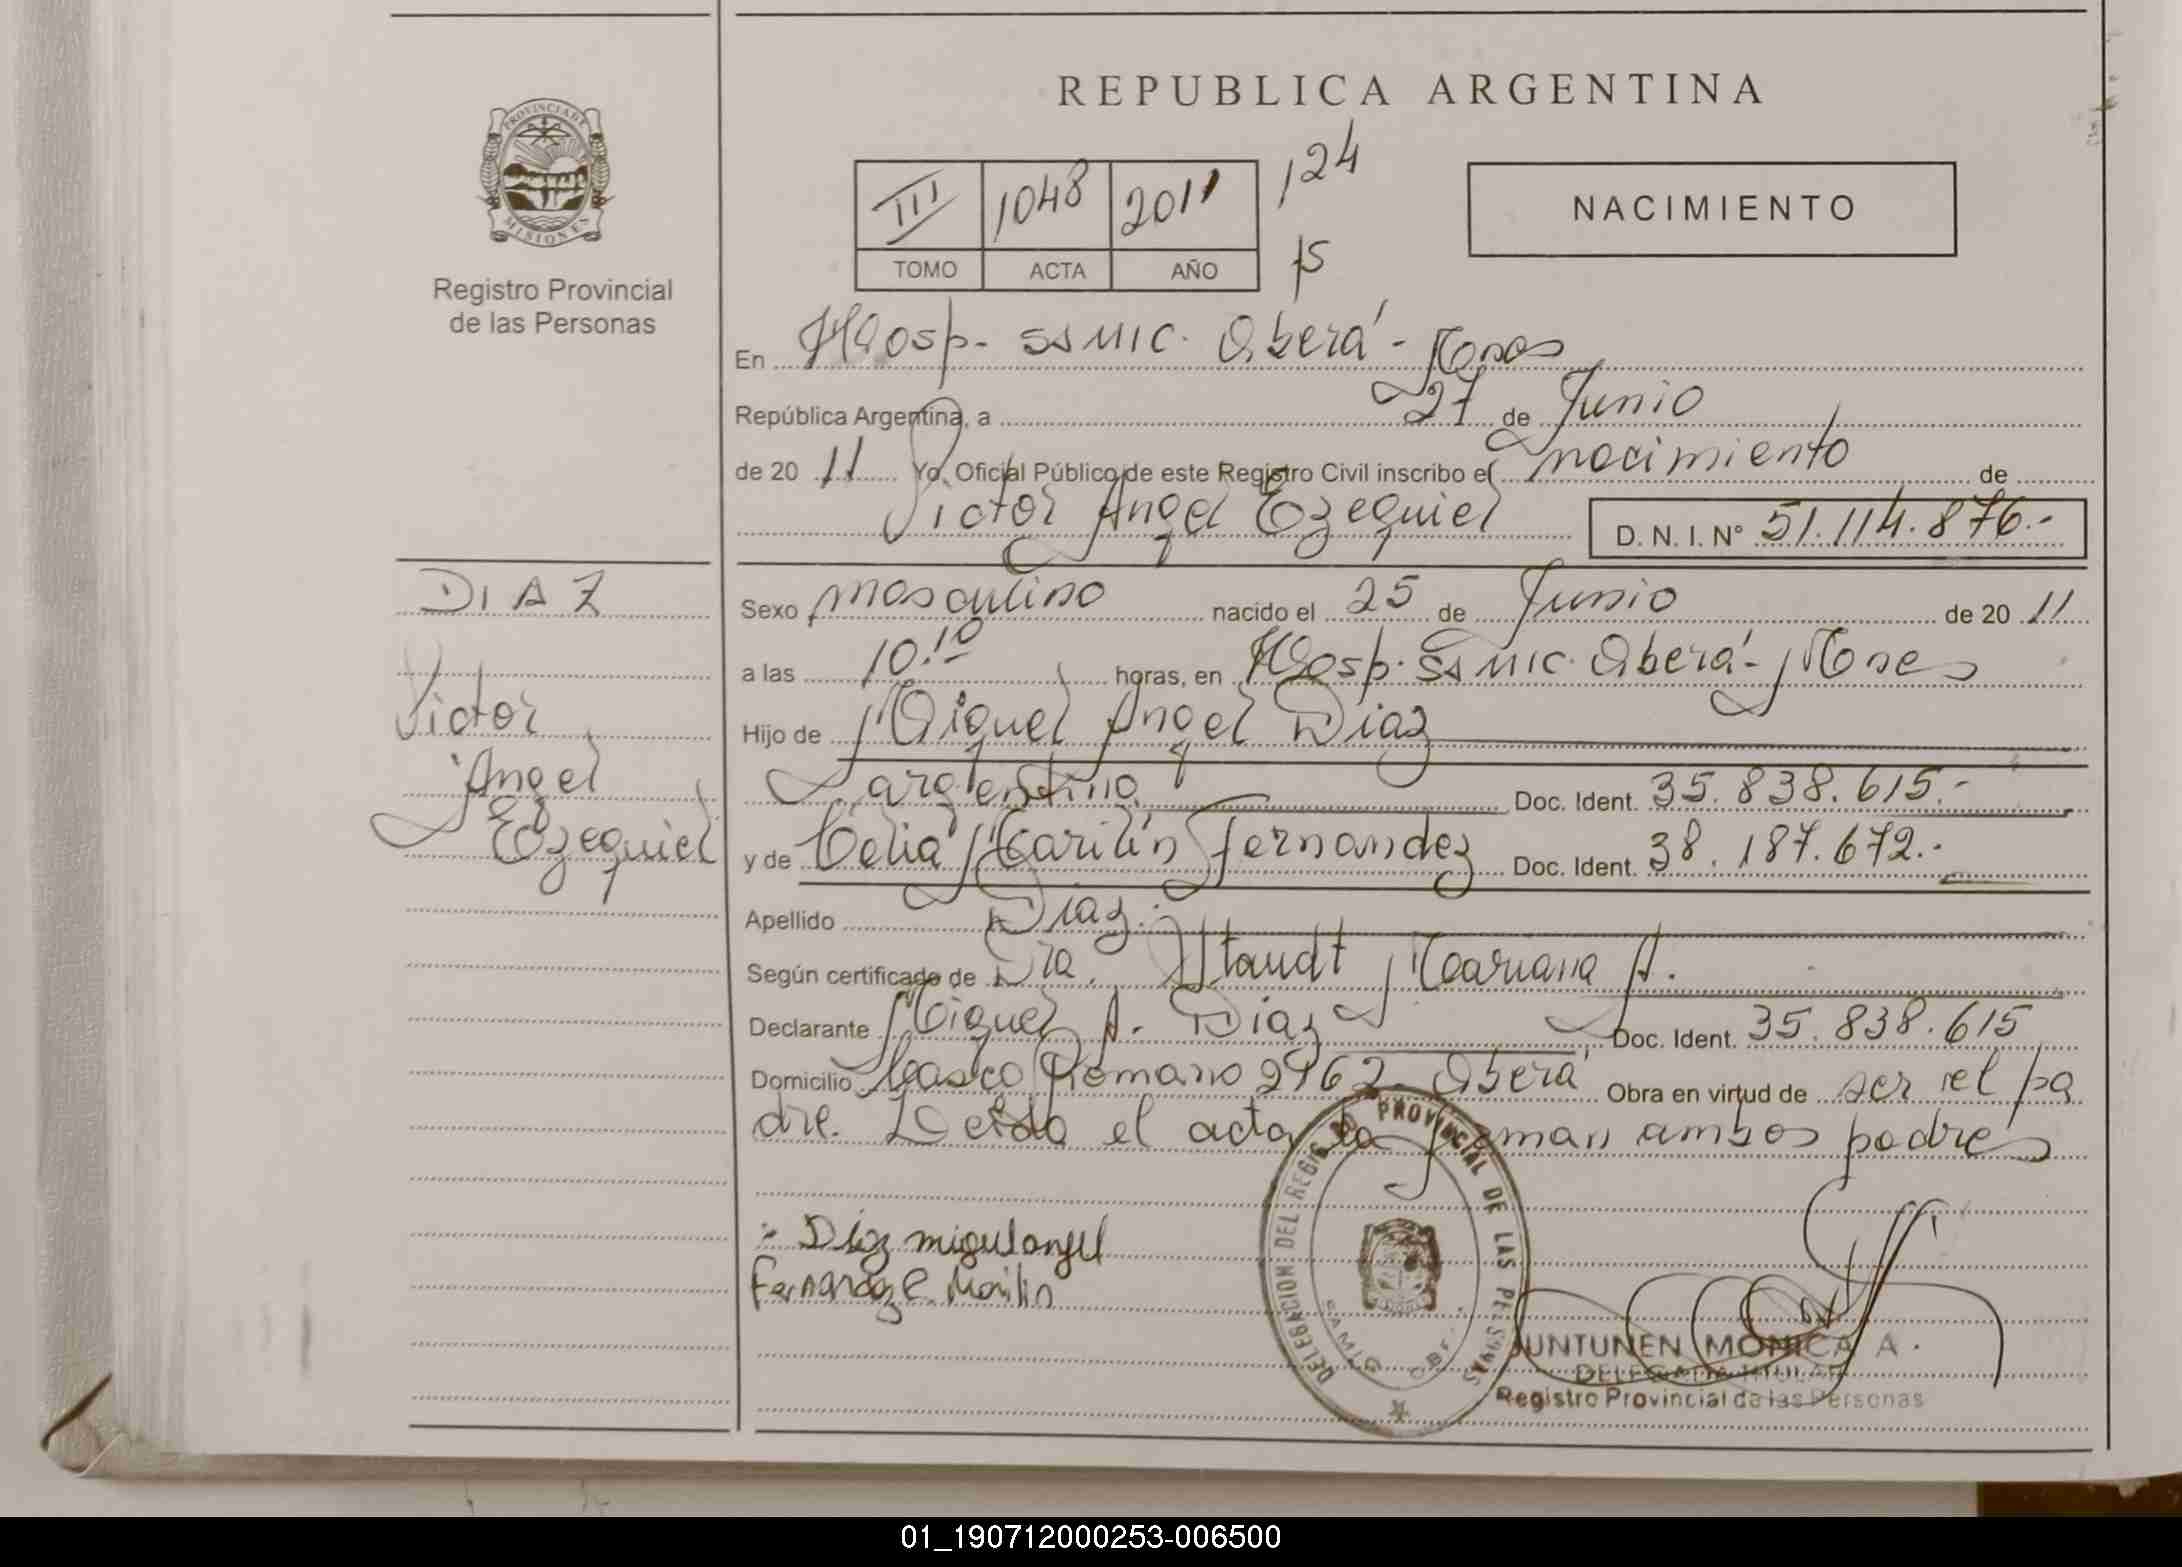 REPUBLICA ARGENTINA
PROVINCIA DE
MISIONES
Registro Provincial
de las Personas
III 1048 2011 124
TOMO ACTA AÑO 15
NACIMIENTO
En Hosp. SAMIC. Oberá - Mnes
República Argentina, a 27 de Junio
de 20 11 Yo, Oficial Público de este Registro Civil inscribo el nacimiento de
Victor Angel Ezequiel D. N. I. N° 51.114.876.-
DIAZ
Victor
Angel
Ezequiel
Sexo masculino nacido el 25 de Junio de 20 11
a las 10.10 horas, en Hosp. SAMIC. Oberá - Mnes
Hijo de Miguel Angel Diaz
argentino Doc. Ident. 35.838.615.-
y de Celia Marilín Fernandez Doc. Ident. 38.187.672.-
Apellido Diaz.
Según certificado de Dra. Staudt Mariana A.
Declarante Miguel A. Diaz Doc. Ident. 35.838.615
Domicilio Casco Romano 2962 Oberá Obra en virtud de ser el pa
dre. Leida el acta la firman ambos padres
Díaz miguel angel
Fernandez C. Marilin
DELEGACION DEL REGISTRO PROVINCIAL DE LAS PERSONAS
SAMIC
JUNTUNEN MONICA A.
DELEGADA TITULAR
Registro Provincial de las Personas
01_190712000253-006500